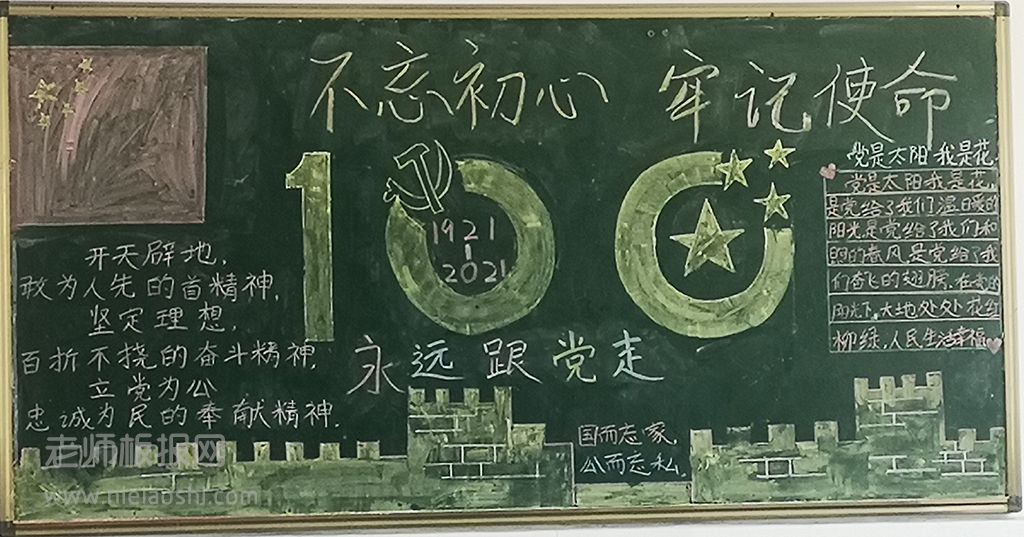 不忘初心 牢记使命
100
1921
2021
永远跟党走
开天辟地,
敢为人先的首精神,
坚定理想,
百折不挠的奋斗精神,
立党为公
忠诚为民的奉献精神.
国而忘家,
公而忘私.
党是太阳 我是花.
党是太阳我是花,
是党给了我们温暖的
阳光是党给了我们和
的春风,是党给了我
们奋飞的翅膀,在党的
阳光下,大地处处花红
柳绿,人民生活幸福
老师板报网
www.nielaoshi.com